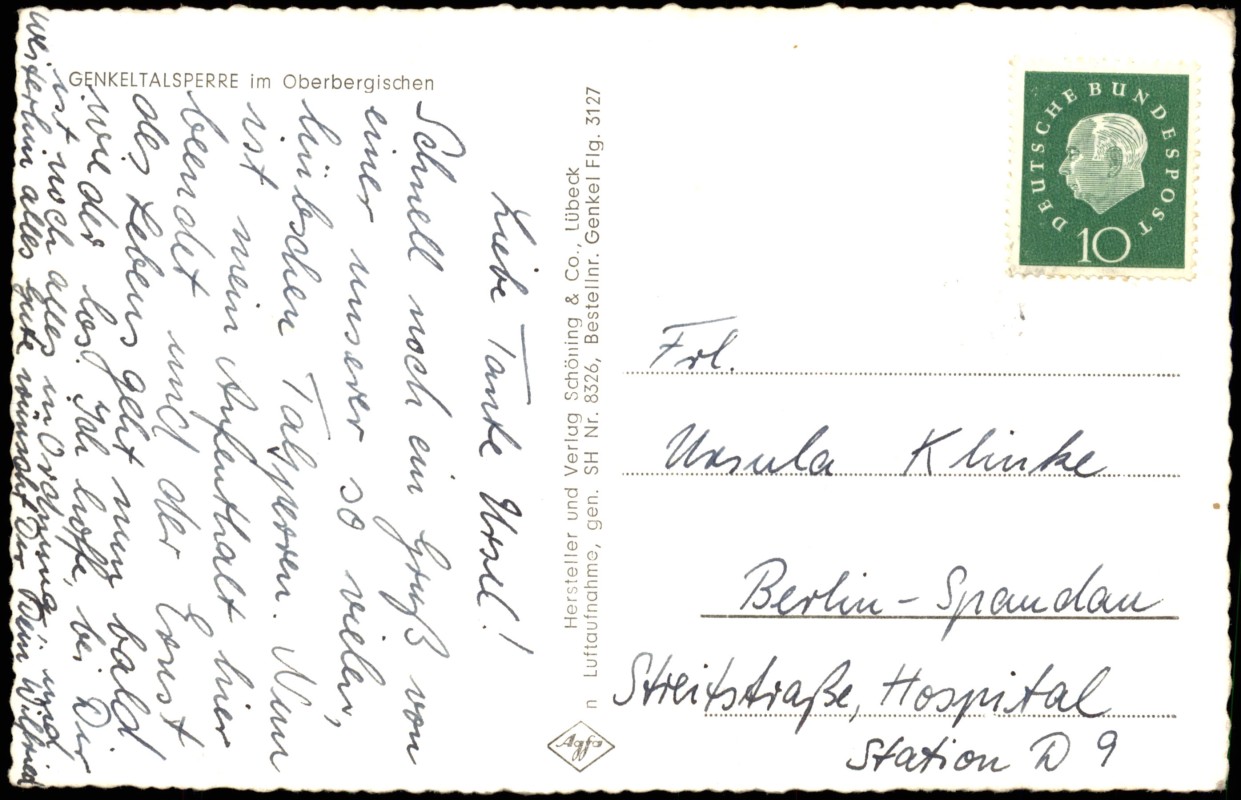 GENKELTALSPERRE im Oberbergischen
Liebe Tante Ursel!
Schnell noch ein Gruß von
einer unserer so vielen,
hübschen Talsperren. Nun
ist mein Aufenthalt hier
beendet und der Ernst
des Lebens geht nun bald
wieder los. Ich hoffe, bei Dir
ist noch alles in Ordnung und
weiterhin alles gute wünscht Dir Dein Wilfried
Hersteller und Verlag Schöning & Co., Lübeck
n Luftaufnahme, gen. SH Nr. 8326, Bestellnr. Genkel Flg. 3127
Agfa
DEUTSCHE BUNDESPOST
10
Frl.
Ursula Klinke
Berlin - Spandau
Streitstraße, Hospital
Station D 9